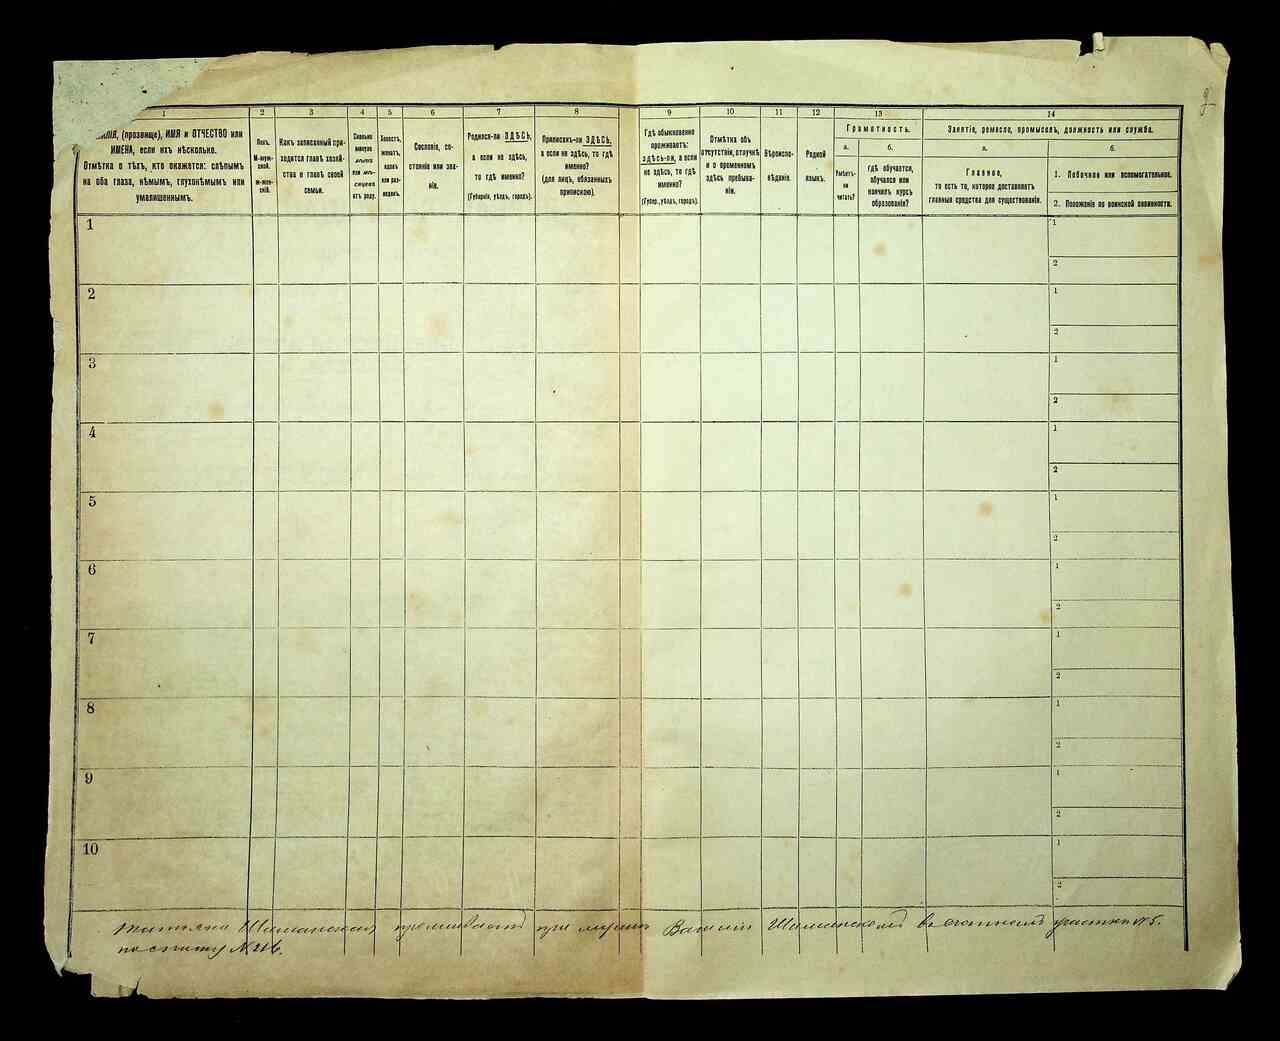 2
1 2 3 4 5 6 7 8 9 10 11 12 13 14
(прозвище), ИМЯ и ОТЧЕСТВО или
ИМЕНА, если ихъ нѣсколько.
Отмѣтка о тѣхъ, кто окажется: слѣпымъ
на оба глаза, нѣмымъ, глухонѣмымъ или
умалишеннымъ.
Полъ.
М-муж-
ской.
Ж-жен-
скій.
Какъ записанный при-
ходится главѣ хозяй-
ства и главѣ своей
семьи.
Сколько
минуло
лѣтъ
или мѣ-
сяцевъ
отъ роду.
Холостъ,
женатъ,
вдовъ
или раз-
веденъ.
Сословіе, со-
стояніе или зва-
ніе.
Родился-ли ЗДѢСЬ,
а если не здѣсь,
то гдѣ именно?
(Губернія, уѣздъ, городъ).
Приписанъ-ли ЗДѢСЬ,
а если не здѣсь, то гдѣ
именно?
(для лицъ, обязанныхъ
припискою).
Гдѣ обыкновенно
проживаетъ:
здѣсь-ли, а если
не здѣсь, то гдѣ
именно?
(Губер., уѣздъ, городъ).
Отмѣтка объ
отсутствіи, отлучкѣ
и о временномъ
здѣсь пребыва-
ніи.
Вѣроиспо-
вѣданіе.
Родной
языкъ.
Грамотность.
а.
Умѣетъ-
ли
читать?
б.
гдѣ обучается,
обучался или
кончилъ курсъ
образованія?
Занятіе, ремесло, промыселъ, должность или служба.
а.
Главное,
то есть то, которое доставляетъ
главныя средства для существованія.
б.
1. Побочное или вспомогательное.
2. Положеніе по воинской повинности.
1 1
2
2 1
2
3 1
2
4 1
2
5 1
2
6 1
2
7 1
2
8 1
2
9 1
2
10 1
2
Шаманская проживаетъ при Василіи Шаманскомъ въ участкѣ №5.
по счету №